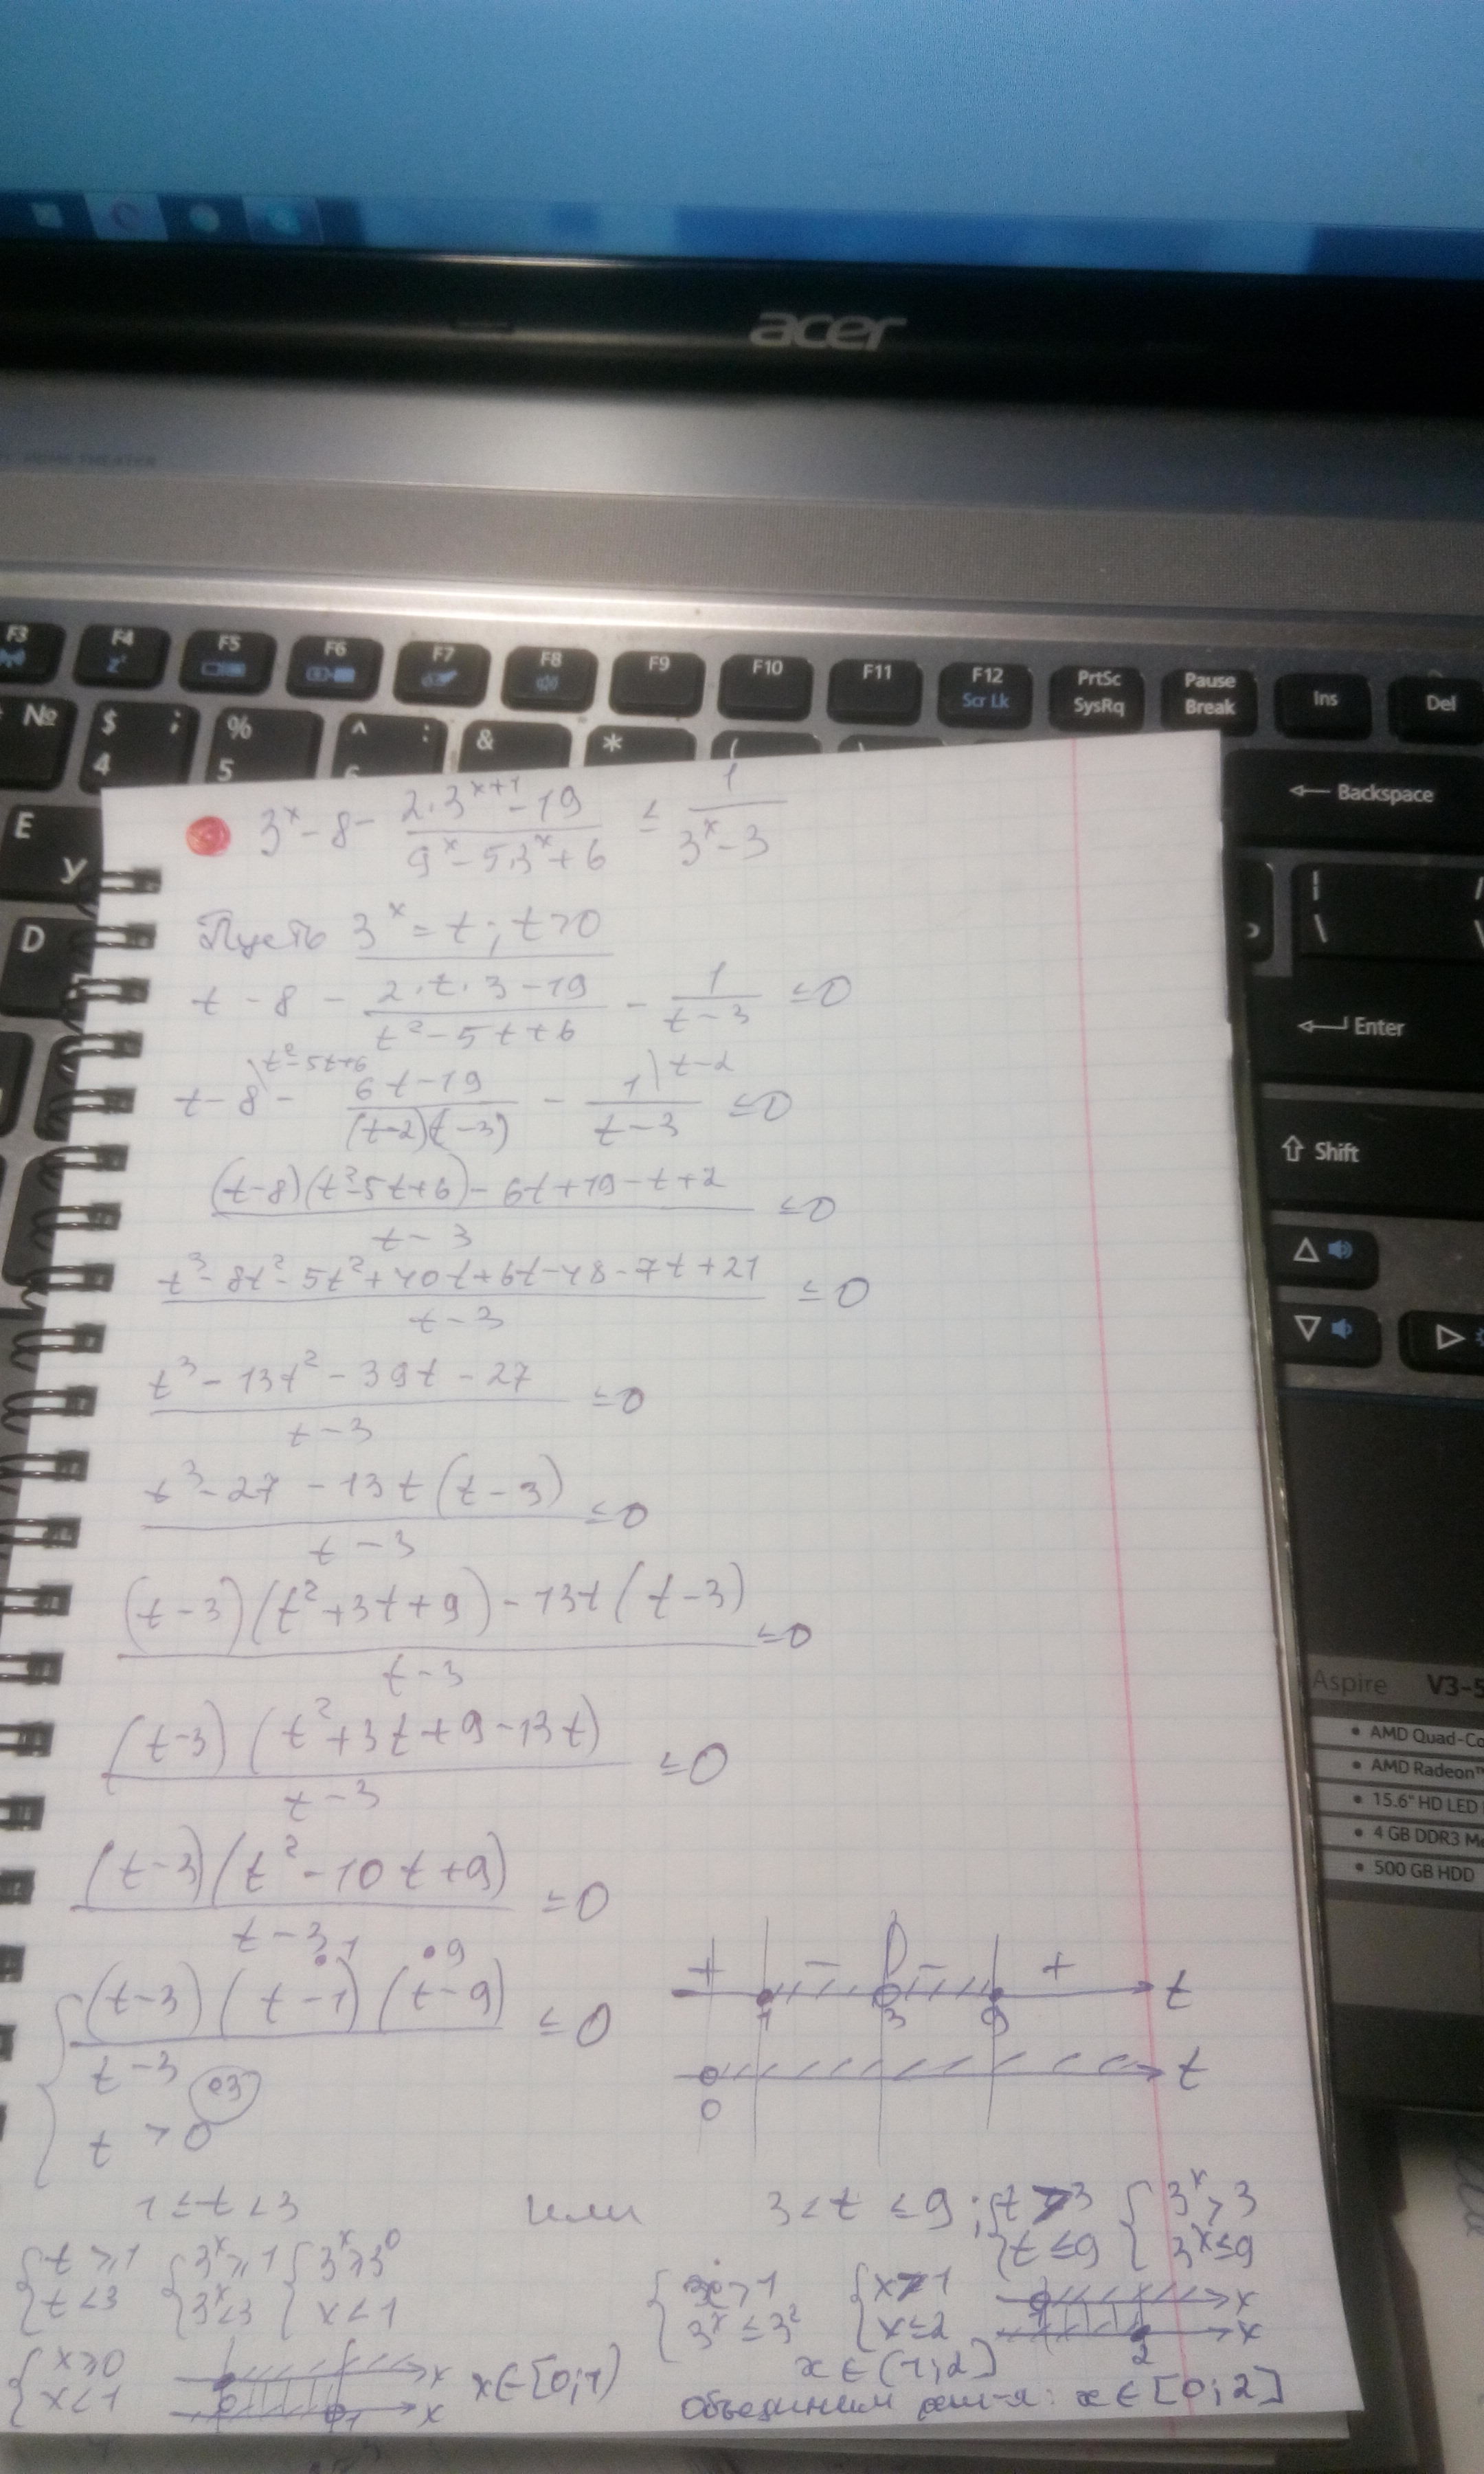 acer
F3 F4 F5 F6 F7 F8 F9 F10 F11 F12 Scr Lk PrtSc SysRq Pause Break Ins Del
№ $ ; 4 % 5 ^ : 6 & * (
E У
D
← Backspace
| \ /
← Enter
⇧ Shift
Aspire V3-5
• AMD Quad-Co
• AMD Radeon™
• 15.6" HD LED
• 4 GB DDR3 Me
• 500 GB HDD
3^x - 8 - (2·3^(x+1) - 19)/(9^x - 5·3^x + 6) ≤ 1/(3^x - 3)
Пусть 3^x = t; t > 0
t - 8 - (2·t·3 - 19)/(t² - 5t + 6) - 1/(t - 3) ≤ 0
t - 8\t²-5t+6 - (6t - 19)/((t-2)(t-3)) - 1\t-2/(t - 3) ≤ 0
((t-8)(t²-5t+6) - 6t + 19 - t + 2)/(t - 3) ≤ 0
(t³ - 8t² - 5t² + 40t + 6t - 48 - 7t + 21)/(t - 3) ≤ 0
(t³ - 13t² - 39t - 27)/(t - 3) ≤ 0
(t³ - 27 - 13t(t - 3))/(t - 3) ≤ 0
((t-3)(t²+3t+9) - 13t(t-3))/(t - 3) ≤ 0
((t-3)(t²+3t+9-13t))/(t - 3) ≤ 0
((t-3)(t²-10t+9))/(t - 3) ≤ 0
•1 •9
{ ((t-3)(t-1)(t-9))/(t - 3) ≤ 0
°3
t > 0
+ − − + t
1 3 9
t
0
1 ≤ t < 3 или 3 < t ≤ 9; { t > 3 { 3^x > 3
t ≤ 9 3^x ≤ 9
{ t ≥ 1 { 3^x ≥ 1 { 3^x ≥ 3^0
t < 3 3^x < 3 x < 1
{ x > 1 { x > 1 x
3^x ≤ 3² x ≤ 2 x
1 2
{ x ≥ 0 x x ∈ [0; 1)
x < 1 x
0 1
x ∈ (1; 2]
Объединим реш-я: x ∈ [0; 2]